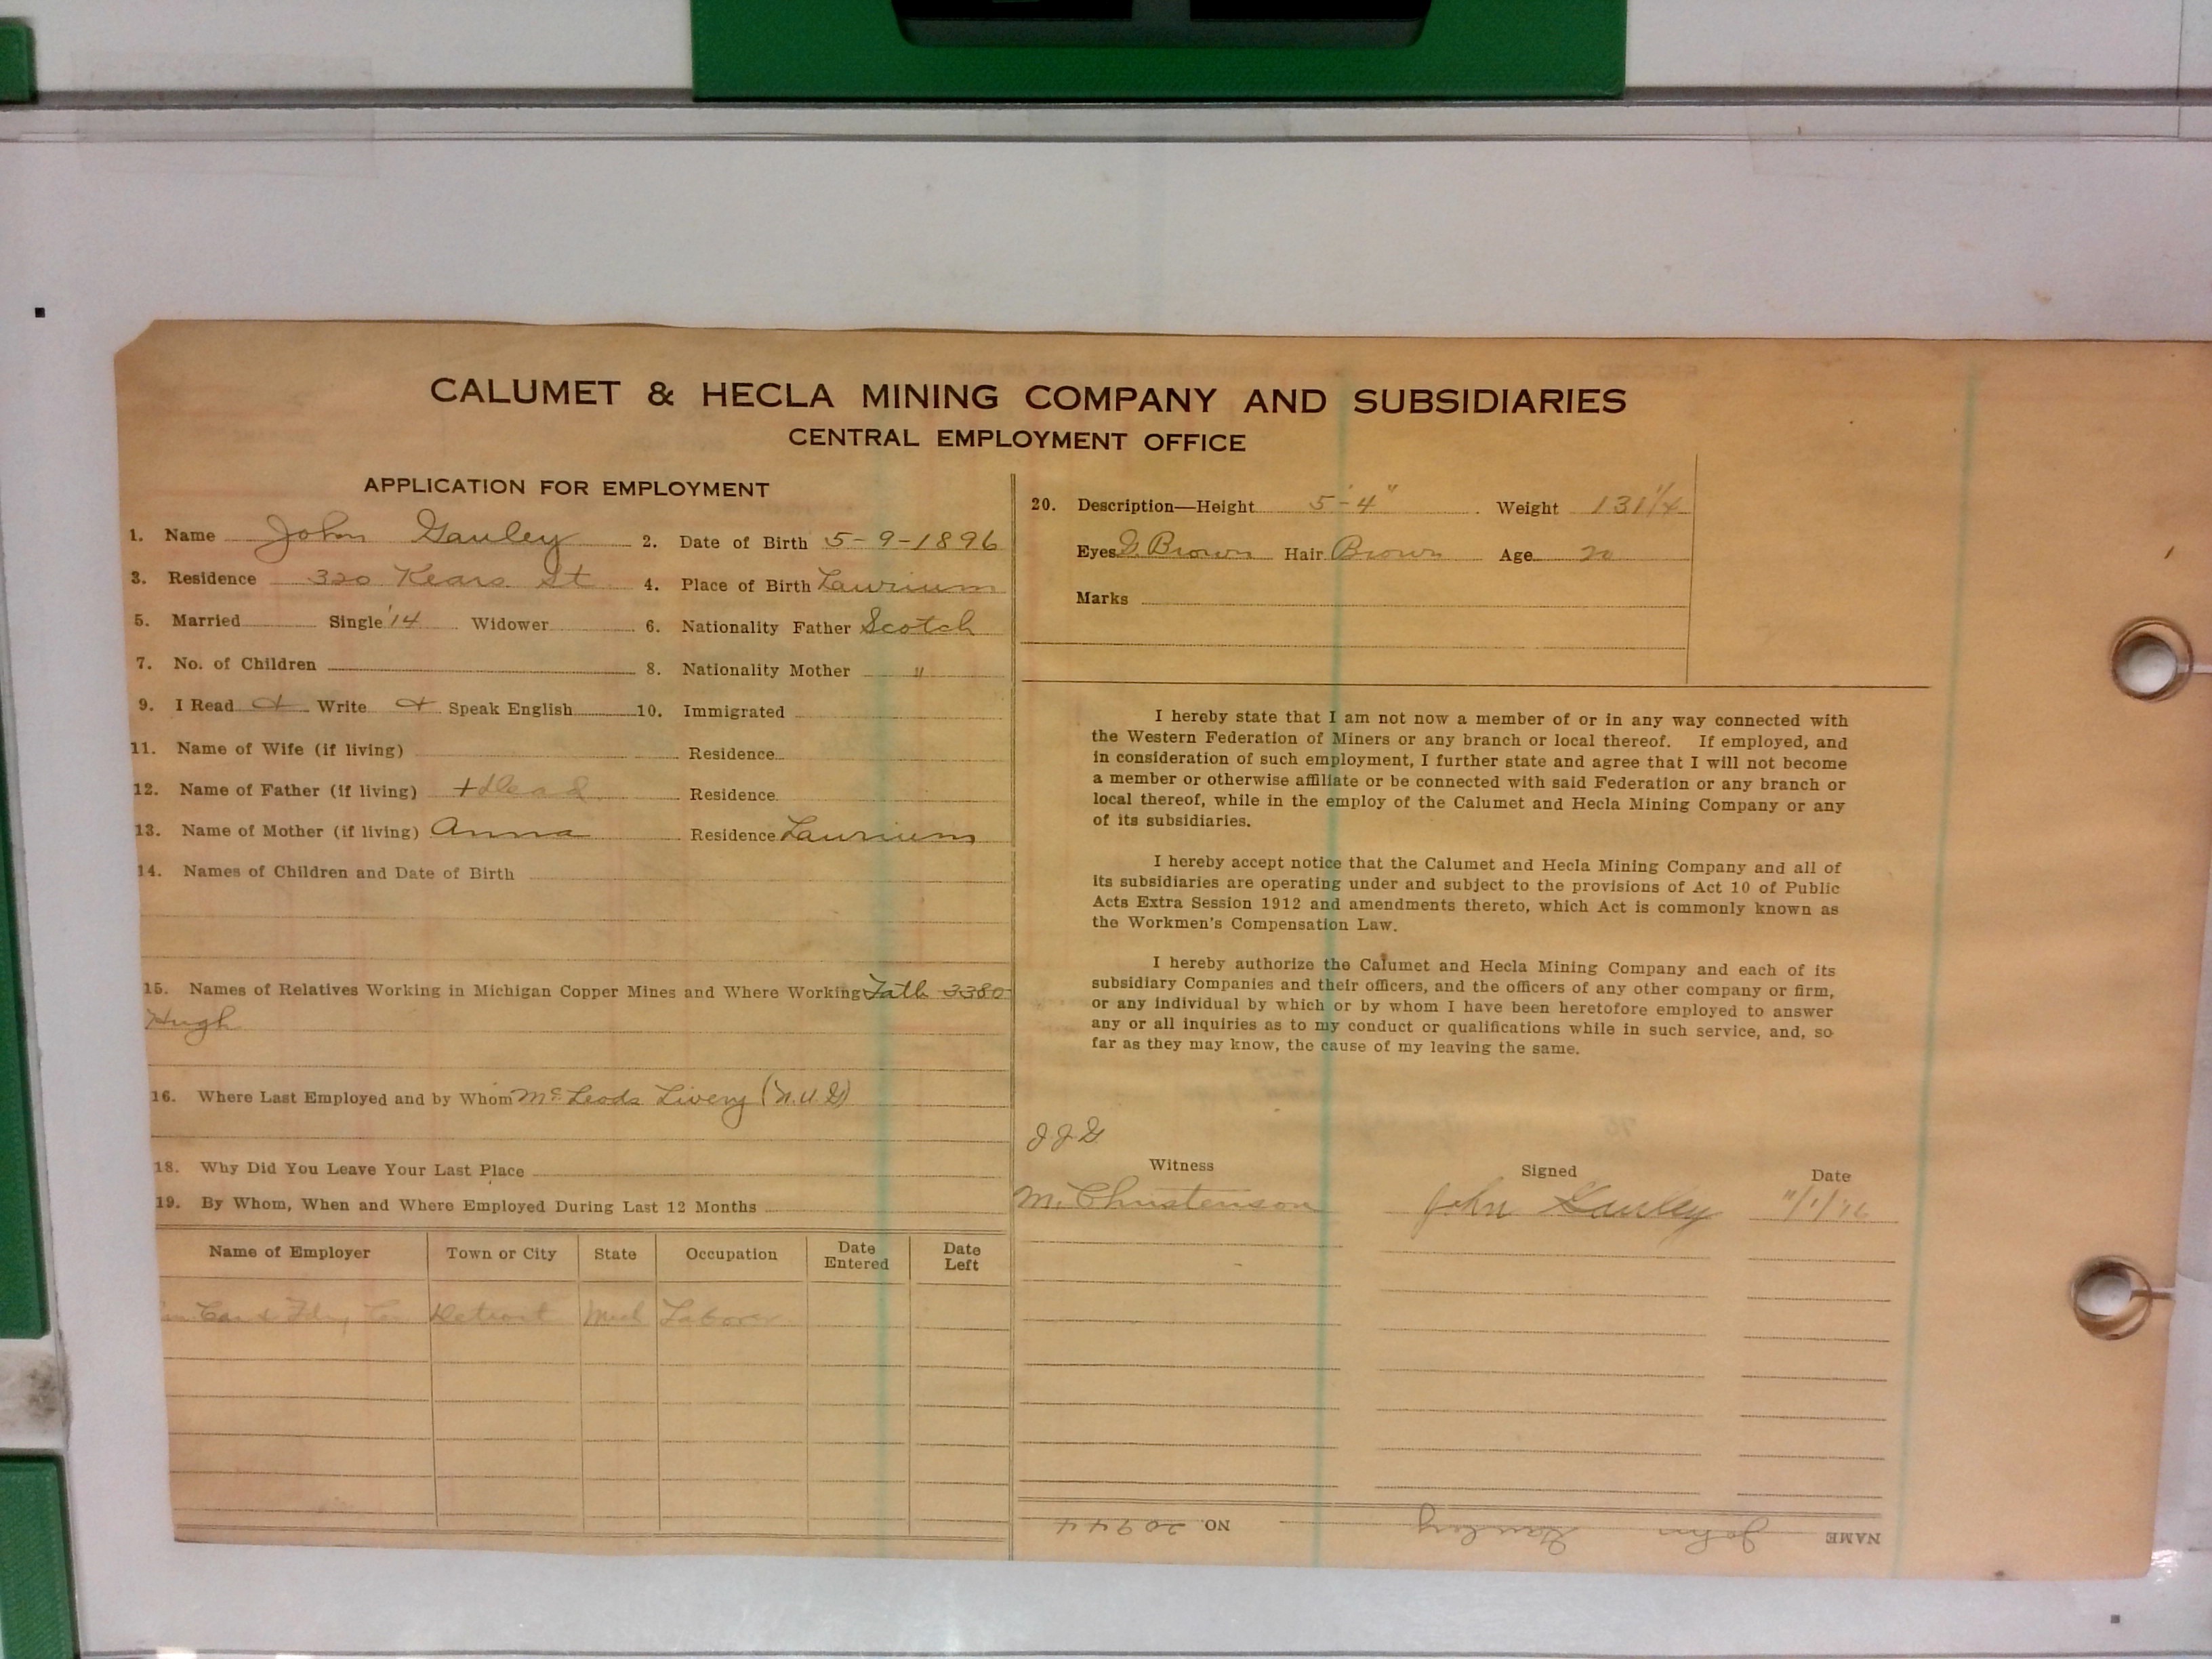 CALUMET & HECLA MINING COMPANY AND SUBSIDIARIES
CENTRAL EMPLOYMENT OFFICE
APPLICATION FOR EMPLOYMENT
1. Name John Gauley 2. Date of Birth 5-9-1896
3. Residence 320 Kears. St 4. Place of Birth Laurium
5. Married Single '14 Widower 6. Nationality Father Scotch
7. No. of Children 8. Nationality Mother "
9. I Read Write Speak English 10. Immigrated
11. Name of Wife (if living) Residence
12. Name of Father (if living) + Dead Residence
13. Name of Mother (if living) Anna Residence Laurium
14. Names of Children and Date of Birth
15. Names of Relatives Working in Michigan Copper Mines and Where Working Fath 3380
Hugh
16. Where Last Employed and by Whom McLeods Livery
18. Why Did You Leave Your Last Place
19. By Whom, When and Where Employed During Last 12 Months
Name of Employer Town or City State Occupation Date Entered Date Left
Car & Fdry Co. Detroit Mich Laborer
20. Description—Height 5'-4" Weight 131 1/4
Eyes G. Brown Hair Brown Age 20
Marks
I hereby state that I am not now a member of or in any way connected with
the Western Federation of Miners or any branch or local thereof. If employed, and
in consideration of such employment, I further state and agree that I will not become
a member or otherwise affiliate or be connected with said Federation or any branch or
local thereof, while in the employ of the Calumet and Hecla Mining Company or any
of its subsidiaries.
I hereby accept notice that the Calumet and Hecla Mining Company and all of
its subsidiaries are operating under and subject to the provisions of Act 10 of Public
Acts Extra Session 1912 and amendments thereto, which Act is commonly known as
the Workmen's Compensation Law.
I hereby authorize the Calumet and Hecla Mining Company and each of its
subsidiary Companies and their officers, and the officers of any other company or firm,
or any individual by which or by whom I have been heretofore employed to answer
any or all inquiries as to my conduct or qualifications while in such service, and, so
far as they may know, the cause of my leaving the same.
JJG
Witness Signed Date
M. Christenson John Gauley 11/1/16
NAME John Gauley NO. 20944